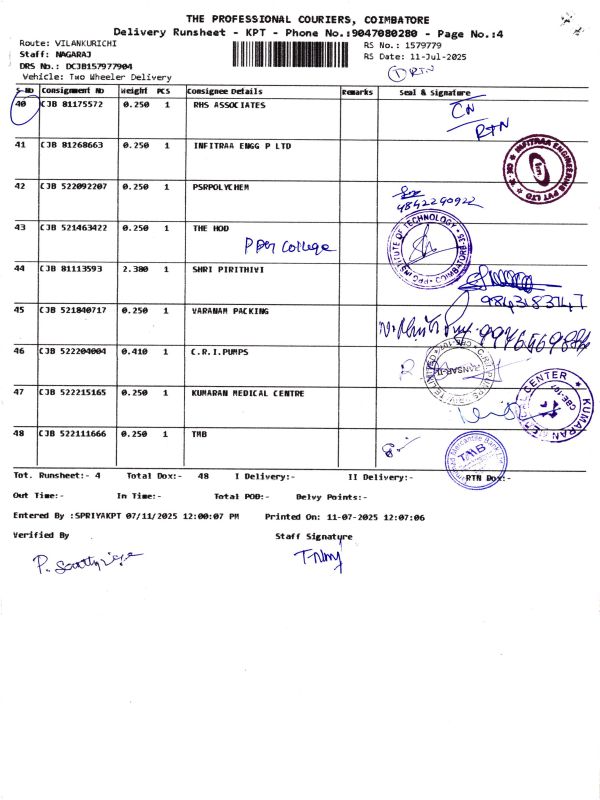 THE PROFESSIONAL COURIERS, COIMBATORE
Delivery Runsheet - KPT - Phone No.:9047080280 - Page No.:4
Route: VILANKURICHI
RS No.: 1579779
Staff: NAGARAJ
RS Date: 11-Jul-2025
DRS No.: DCJB157977904
Vehicle: Two Wheeler Delivery
① RTN
S-No Consignment No Weight PCS Consignee Details Remarks Seal & Signature
40 CJB 81175572 0.250 1 RHS ASSOCIATES
CN
RTN
41 CJB 81268663 0.250 1 INFITRAA ENGG P LTD
INFITRAA ENGINEERING PVT LTD
42 CJB 522092207 0.250 1 PSRPOLYCHEM
9842290922
43 CJB 521463422 0.250 1 THE HOD
PPG College
PPG INSTITUTE OF TECHNOLOGY COIMBATORE-35
44 CJB 81113593 2.380 1 SHRI PIRITHIVI
9843183747
45 CJB 521840717 0.250 1 VARANAM PACKING
46 CJB 522204004 0.410 1 C.R.I.PUMPS
47 CJB 522215165 0.250 1 KUMARAN MEDICAL CENTRE
KUMARAN MEDICAL CENTER
48 CJB 522111666 0.250 1 TMB
TMB
Tot. Runsheet:- 4 Total Dox:- 48 I Delivery:- II Delivery:- RTN Dox:-
Out Time:- In Time:- Total POD:- Delvy Points:-
Entered By :SPRIYAKPT 07/11/2025 12:00:07 PM Printed On: 11-07-2025 12:07:06
Verified By Staff Signature